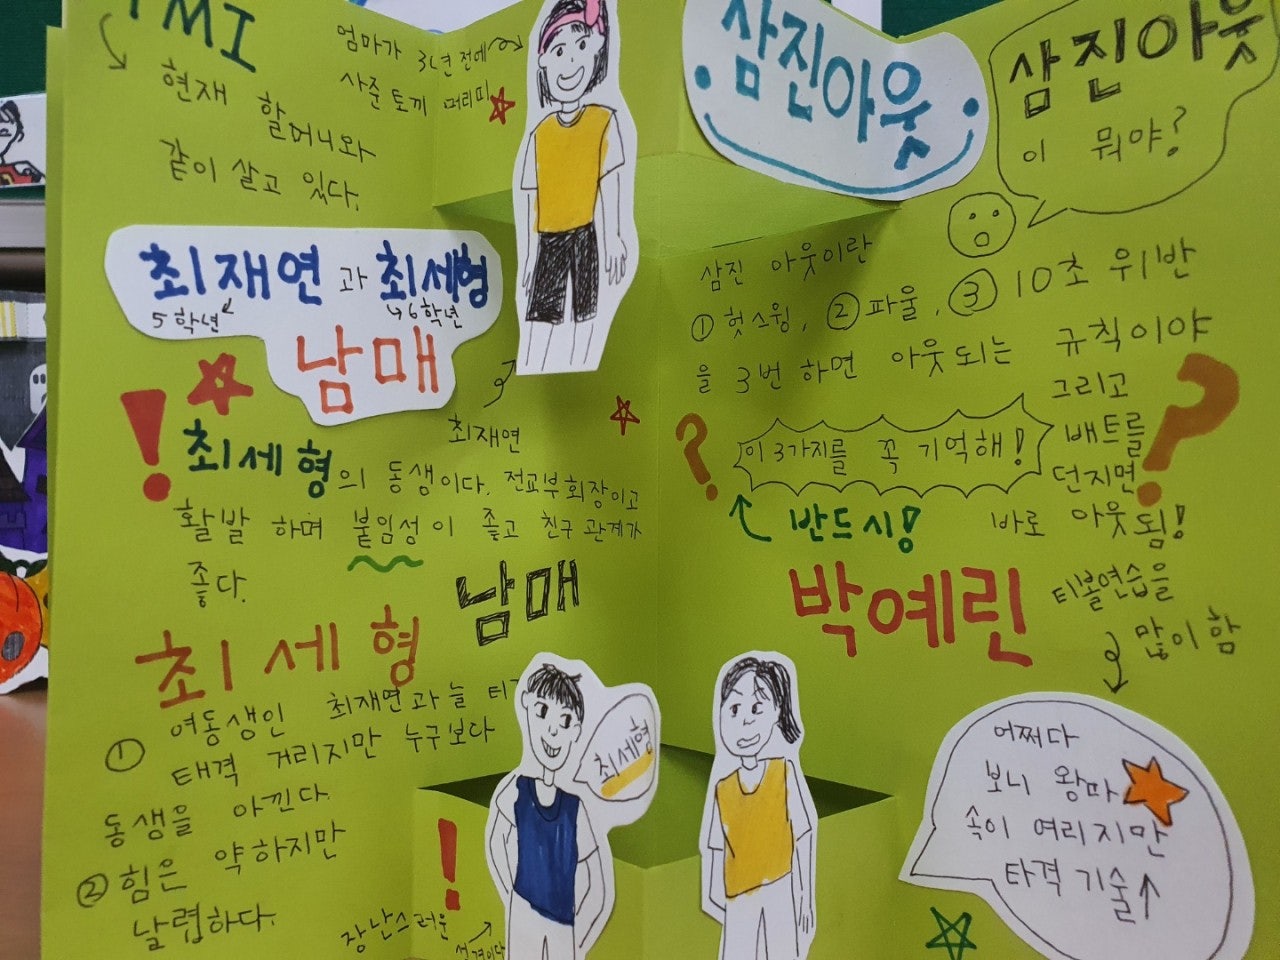 TMI
현재 할머니와
같이 살고 있다.
엄마가 3년 전에
사준 토끼 머리띠
최재연과 최세형
5학년 6학년
남매
최재연
최세형의 동생이다. 전교부회장이고
활발 하며 붙임성이 좋고 친구 관계가
좋다.
남매
최세형
① 여동생인 최재연과 늘
태격 거리지만 누구보다
동생을 아낀다.
② 힘은 약하지만
날렵하다.
장난스러운
성격이다
최세형
삼진아웃
삼진아웃
이 뭐야?
삼진 아웃이란
① 헛스윙, ② 파울, ③ 10초 위반
을 3번 하면 아웃되는 규칙이야
그리고
배트를
던지면
바로 아웃됨!
이 3가지를 꼭 기억해!
반드시!
박예린
티볼연습을
많이 함
어쩌다
보니 왕따
속이 여리지만
타격 기술↑